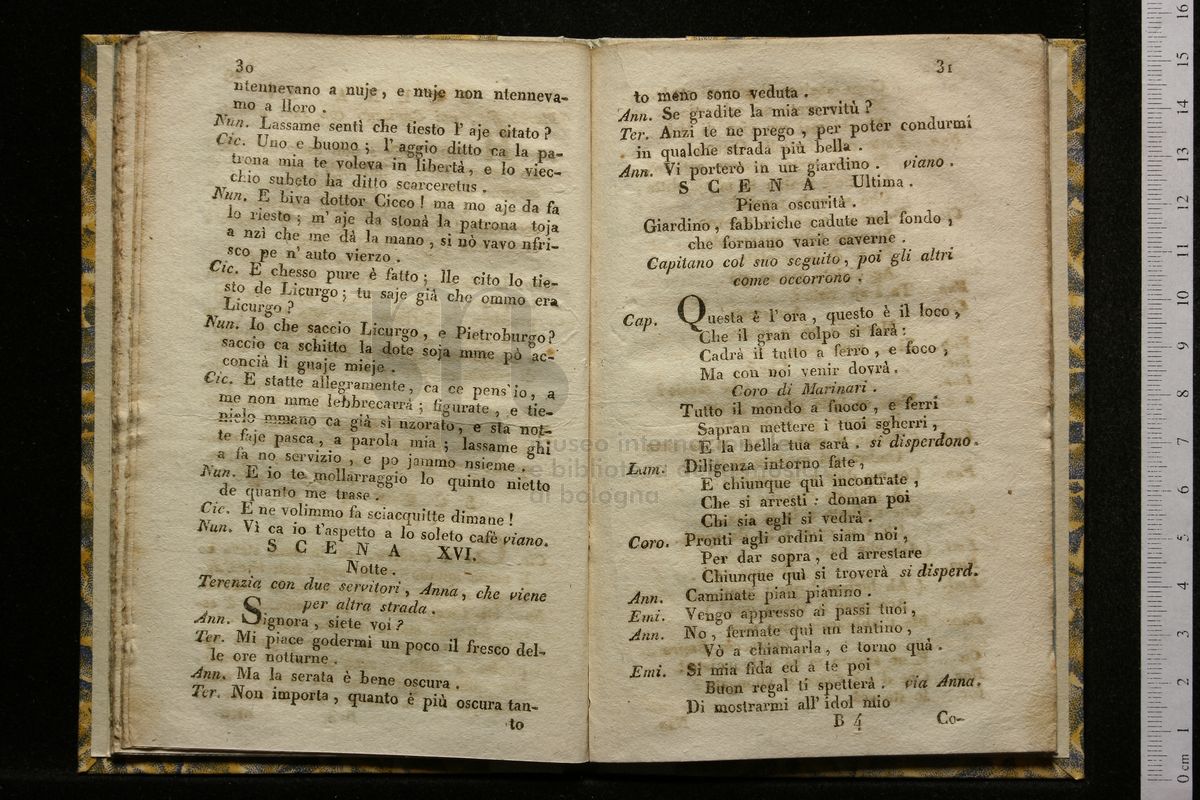 30
ntennevano a nuje, e nuje non ntenneva-
mo a lloro.
Nun. Lassame sentì che tiesto l' aje citato?
Cic. Uno e buono; l' aggio ditto ca la pa-
trona mia te voleva in libertà, e lo viec-
chio subeto ha ditto scarceretus.
Nun. E biva dottor Cicco! ma mo aje da fa
lo riesto; m' aje da stonà la patrona toja
a nzì che me dà la mano, si nò vavo nfri-
sco pe n' auto vierzo.
Cic. E chesso pure è fatto; lle cito lo tie-
sto de Licurgo; tu saje già che ommo era
Licurgo?
Nun. Io che saccio Licurgo, e Pietroburgo?
saccio ca schitto la dote soja mme pò ac-
concià li guaje mieje.
Cic. E statte allegramente, ca ce pens' io, a
me non mme lebbrecarrà; figurate, e tie-
nielo mmano ca già si nzorato, e sta not-
te faje pasca, a parola mia; lassame ghì
a fa no servizio, e po jammo nsieme.
Nun. E io te mollarraggio lo quinto nietto
de quanto me trase.
Cic. E ne volimmo fa sciacquitte dimane!
Nun. Vì ca io t'aspetto a lo soleto cafè viano.
SCENA XVI.
Notte.
Terenzia con due servitori, Anna, che viene
per altra strada.
Ann. Signora, siete voi?
Ter. Mi piace godermi un poco il fresco del-
le ore notturne.
Ann. Ma la serata è bene oscura.
Ter. Non importa, quanto è più oscura tan-
to
31
to meno sono veduta.
Ann. Se gradite la mia servitù?
Ter. Anzi te ne prego, per poter condurmi
in qualche strada più bella.
Ann. Vi porterò in un giardino. viano.
SCENA Ultima.
Piena oscurità.
Giardino, fabbriche cadute nel fondo,
che formano varie caverne.
Capitano col suo seguito, poi gli altri
come occorrono.
Cap. Questa è l' ora, questo è il loco,
Che il gran colpo si farà:
Cadrà il tutto a ferro, e foco,
Ma con noi venir dovrà.
Coro di Marinari.
Tutto il mondo a fuoco, e ferri
Sapran mettere i tuoi sgherri,
E la bella tua sarà. si disperdono.
Lum. Diligenza intorno fate,
E chiunque quì incontrate,
Che si arresti: doman poi
Chi sia egli si vedrà.
Coro. Pronti agli ordini siam noi,
Per dar sopra, ed arrestare
Chiunque quì si troverà si disperd.
Ann. Caminate pian pianino.
Emi. Vengo appresso ai passi tuoi,
Ann. No, fermate quì un tantino,
Vò a chiamarla, e torno quà.
Emi. Si mia fida ed a te poi
Buon regal ti spetterà. via Anna.
Di mostrarmi all' idol mio
B 4 Co-